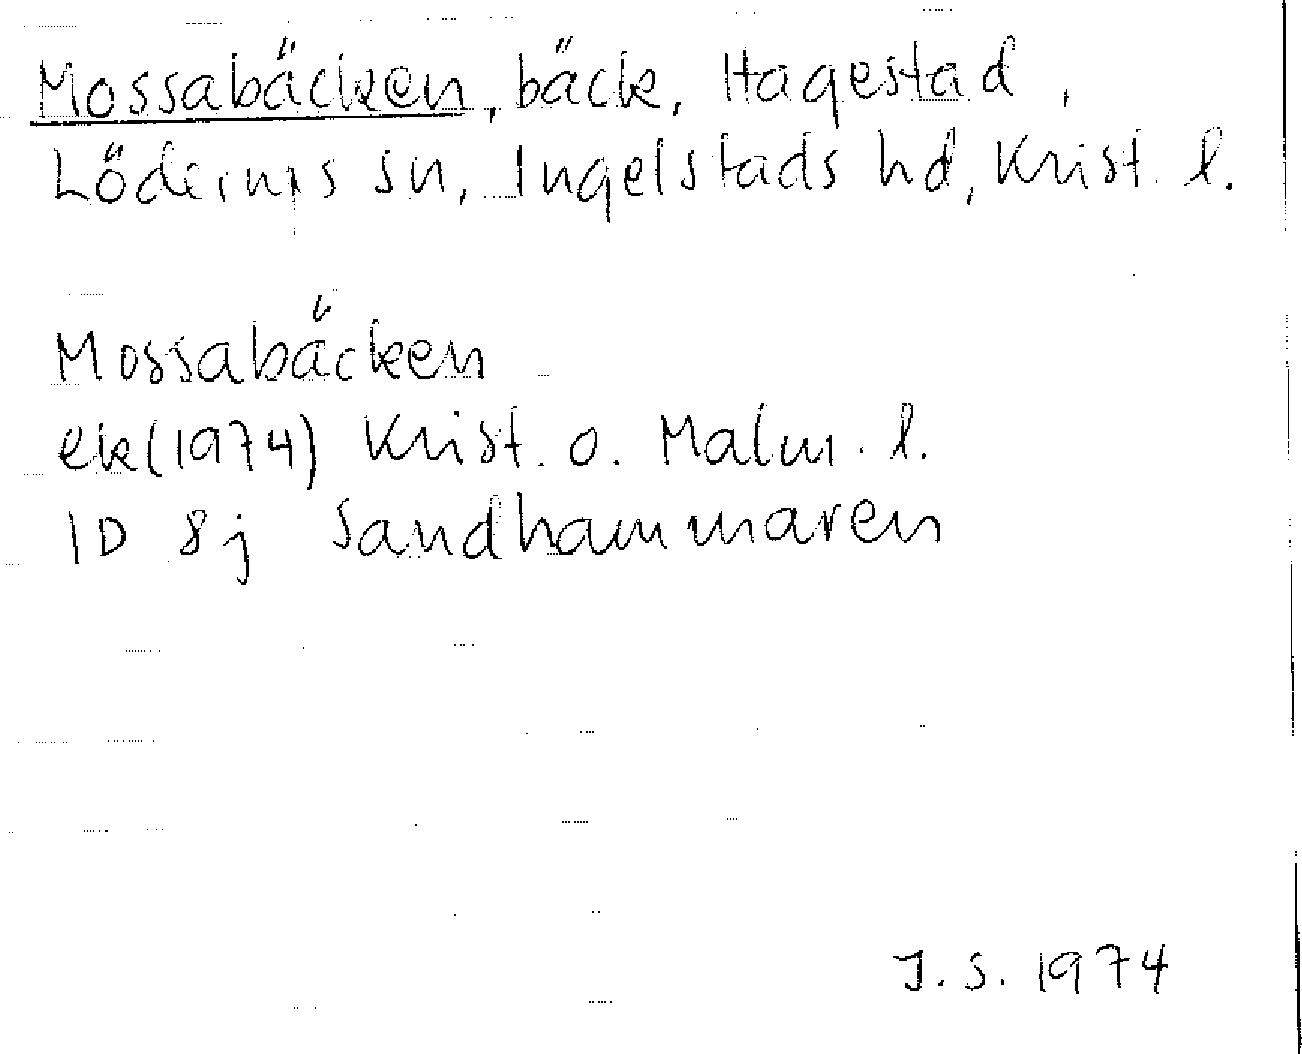 Mossabäcken, bäck, Hagestad,
Löderups sn, Ingelstads hd, Krist. l.
Mossabäcken
ek(1974) Krist. o. Malm. l.
1D 8j Sandhammaren
J.S. 1974